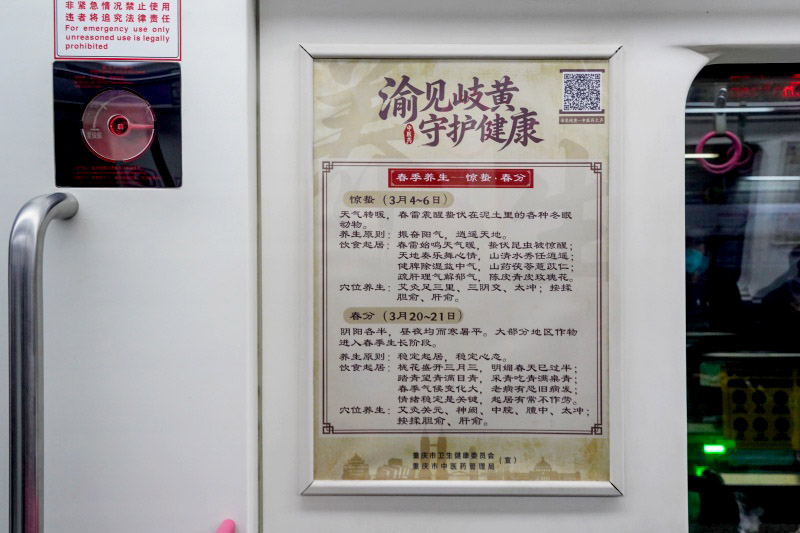 非紧急情况禁止使用
违者将追究法律责任
For emergency use only
unreasoned use is legally
prohibited
渝见岐黄
中医药
守护健康
春季养生—惊蛰·春分
惊蛰（3月4~6日）
天气转暖，春雷震醒蛰伏在泥土里的各种冬眠
动物。
养生原则：振奋阳气，逍遥天地。
饮食起居：春雷始鸣天气暖，蛰伏昆虫被惊醒；
天地奏乐舞心情，山清水秀任逍遥；
健脾除湿益中气，山药茯苓薏苡仁；
疏肝理气解郁气，陈皮青皮玫瑰花。
穴位养生：艾灸足三里、三阴交、太冲；按揉
胆俞、肝俞。
春分（3月20~21日）
阴阳各半，昼夜均而寒暑平。大部分地区作物
进入春季生长阶段。
养生原则：稳定起居，稳定心态。
饮食起居：桃花盛开三月三，明媚春天已过半；
踏青望青满目青，采青吃青满桌青；
春季气候变化大，老病有忌旧病发；
情绪稳定是关键，起居有常不作劳。
穴位养生：艾灸关元、神阙、中脘、膻中、太冲；
按揉胆俞、肝俞。
重庆市卫生健康委员会
重庆市中医药管理局
（宣）